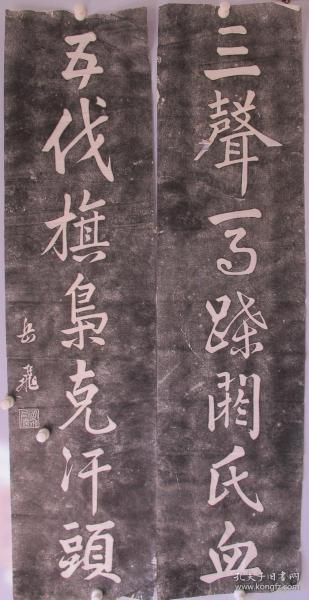 三聲馬蹀閼氏血
五伐旗梟克汗頭
岳飛
孔夫子旧书网
www.kongfz.com